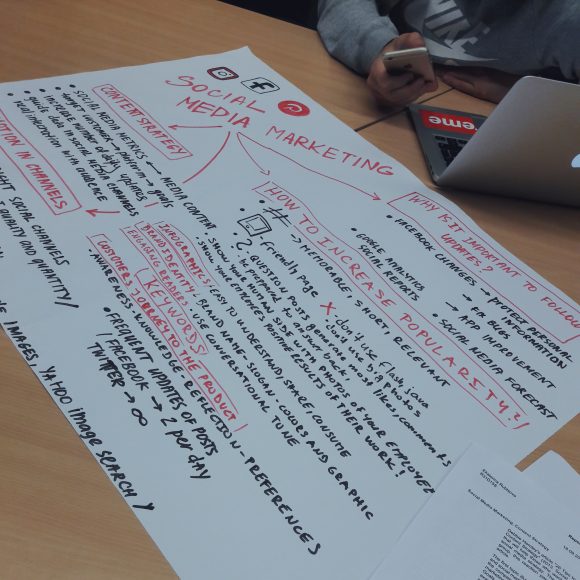 SOCIAL
MEDIA MARKETING
CONTENT STRATEGY
SOCIAL MEDIA METRICS → MEDIA CONTENT
target customers → platform → goals
INCREASE number of daily updates
guide client to SOCIAL MEDIA CHANNELS
real interaction with audience
IN CHANNELS
SOCIAL CHANNELS
QUALITY AND QUANTITY/
IMAGES, YAHOO image SEARCH/
HOW TO INCREASE POPULARITY?/
# → MEMORABLE, SHORT, RELEVANT
- friendly page X don't use flash, java
don't use big photos
? QUESTION POSTS generate more likes, comments
be prepared to answer back
SHOW YOUR HUMAN SIDE with PHOTOS OF YOUR EMPLOYEE
SHOW EXPERIENCES POSITIVE RESULTS OF THEIR WORK!
INFOGRAPHICS: EASY TO UNDERSTAND, SHARE,
BRAND IDENTITY: BRAND NAME - SLOGAN - COLORS AND GRAPHIC
ENGAGING READERS: USE CONVERSATIONAL TONE
(KEYWORDS/
CUSTOMERS JOURNEY TO THE PRODUCT/
AWARENESS - KNOWLEDGE - REFLECTION - PREFERENCES
FREQUENT UPDATES OF POSTS
/FACEBOOK → 2 per day
TWITTER → ∞
WHY IS IT IMPORTANT TO FOLLOW
UPDATES?
FACEBOOK CHANGES → PROTECT PERSONAL
INFORMATION
GOOGLE ANALYTICS
SOCIAL REPORTS
→ APP IMPROVEMENT
SOCIAL MEDIA FORECAST
eme
NIKE
Social Media Marketing, Content Strategy